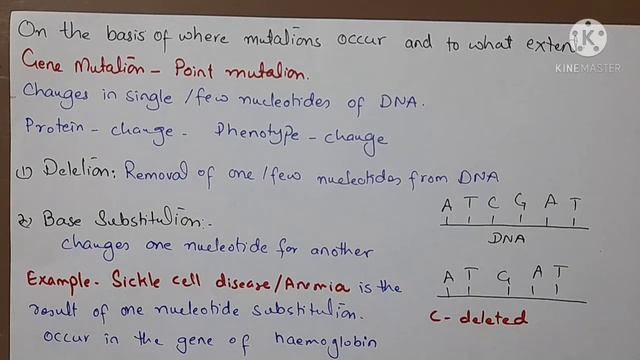 On the basis of where mutations occur and to what exten
KINEMASTER
Gene Mutation - Point mutation.
Changes in single / few nucleotides of DNA.
Protein - change - Phenotype - change
1) Deletion: Removal of one / few nucleotides from DNA
A T C G A T
DNA
2) Base Substitution:-
changes one nucleotide for another
Example - Sickle cell disease/Anmia is the
result of one nucleotide substitution.
occur in the gene of haemoglobin
A T G A T
C - deleted